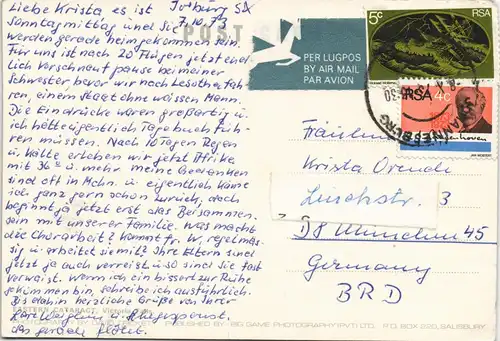 Liebe Krista, es ist Jo'burg SA
Sonntagmittag und Sie 7.10.73
werden gerade heimgekommen sein.
Für uns ist nach 20 Flügen jetzt end-
lich Verschnaufpause bei meiner
Schwester bevor wir nach Lesotho fah-
ren, einem Staat ohne weissen Mann.
Die Eindrücke waren großartig u.
ich hätte eigentlich Tagebuch füh-
ren müssen. Nach 10 Tagen Regen
u. Kälte erleben wir jetzt Afrika
mit 36° u. mehr meine Gedanken
sind oft in Mchn. u. eigentlich käme
ich ganz gern schon zurück, doch
beginnt ja jetzt erst das Beisammen-
sein mit unserer Familie. Was macht
die Chorarbeit? Kommt Fr. W. regelmäs-
sig u. arbeitet sie mit? Ihre Eltern sind
jetzt ja auch verreist u. so sind Sie fast
verwaist. Wenn ich ein bisserl zur Ruhe
gekommen bin, schreibe ich ausführlich.
Bis dahin herzliche Grüße von Ihrer
das gerade flötet.
POST
PER LUGPOS
BY AIR MAIL
PAR AVION
5c
RSA
RSA 4c
Fräulein
Krista Orendi
Linchstr. 3
D8 München 45
Germany
BRD
EASTERN CATARACT, Victoria Falls
PUBLISHED BY BIG GAME PHOTOGRAPHY (PVT) LTD. P.O. BOX 2120, SALISBURY